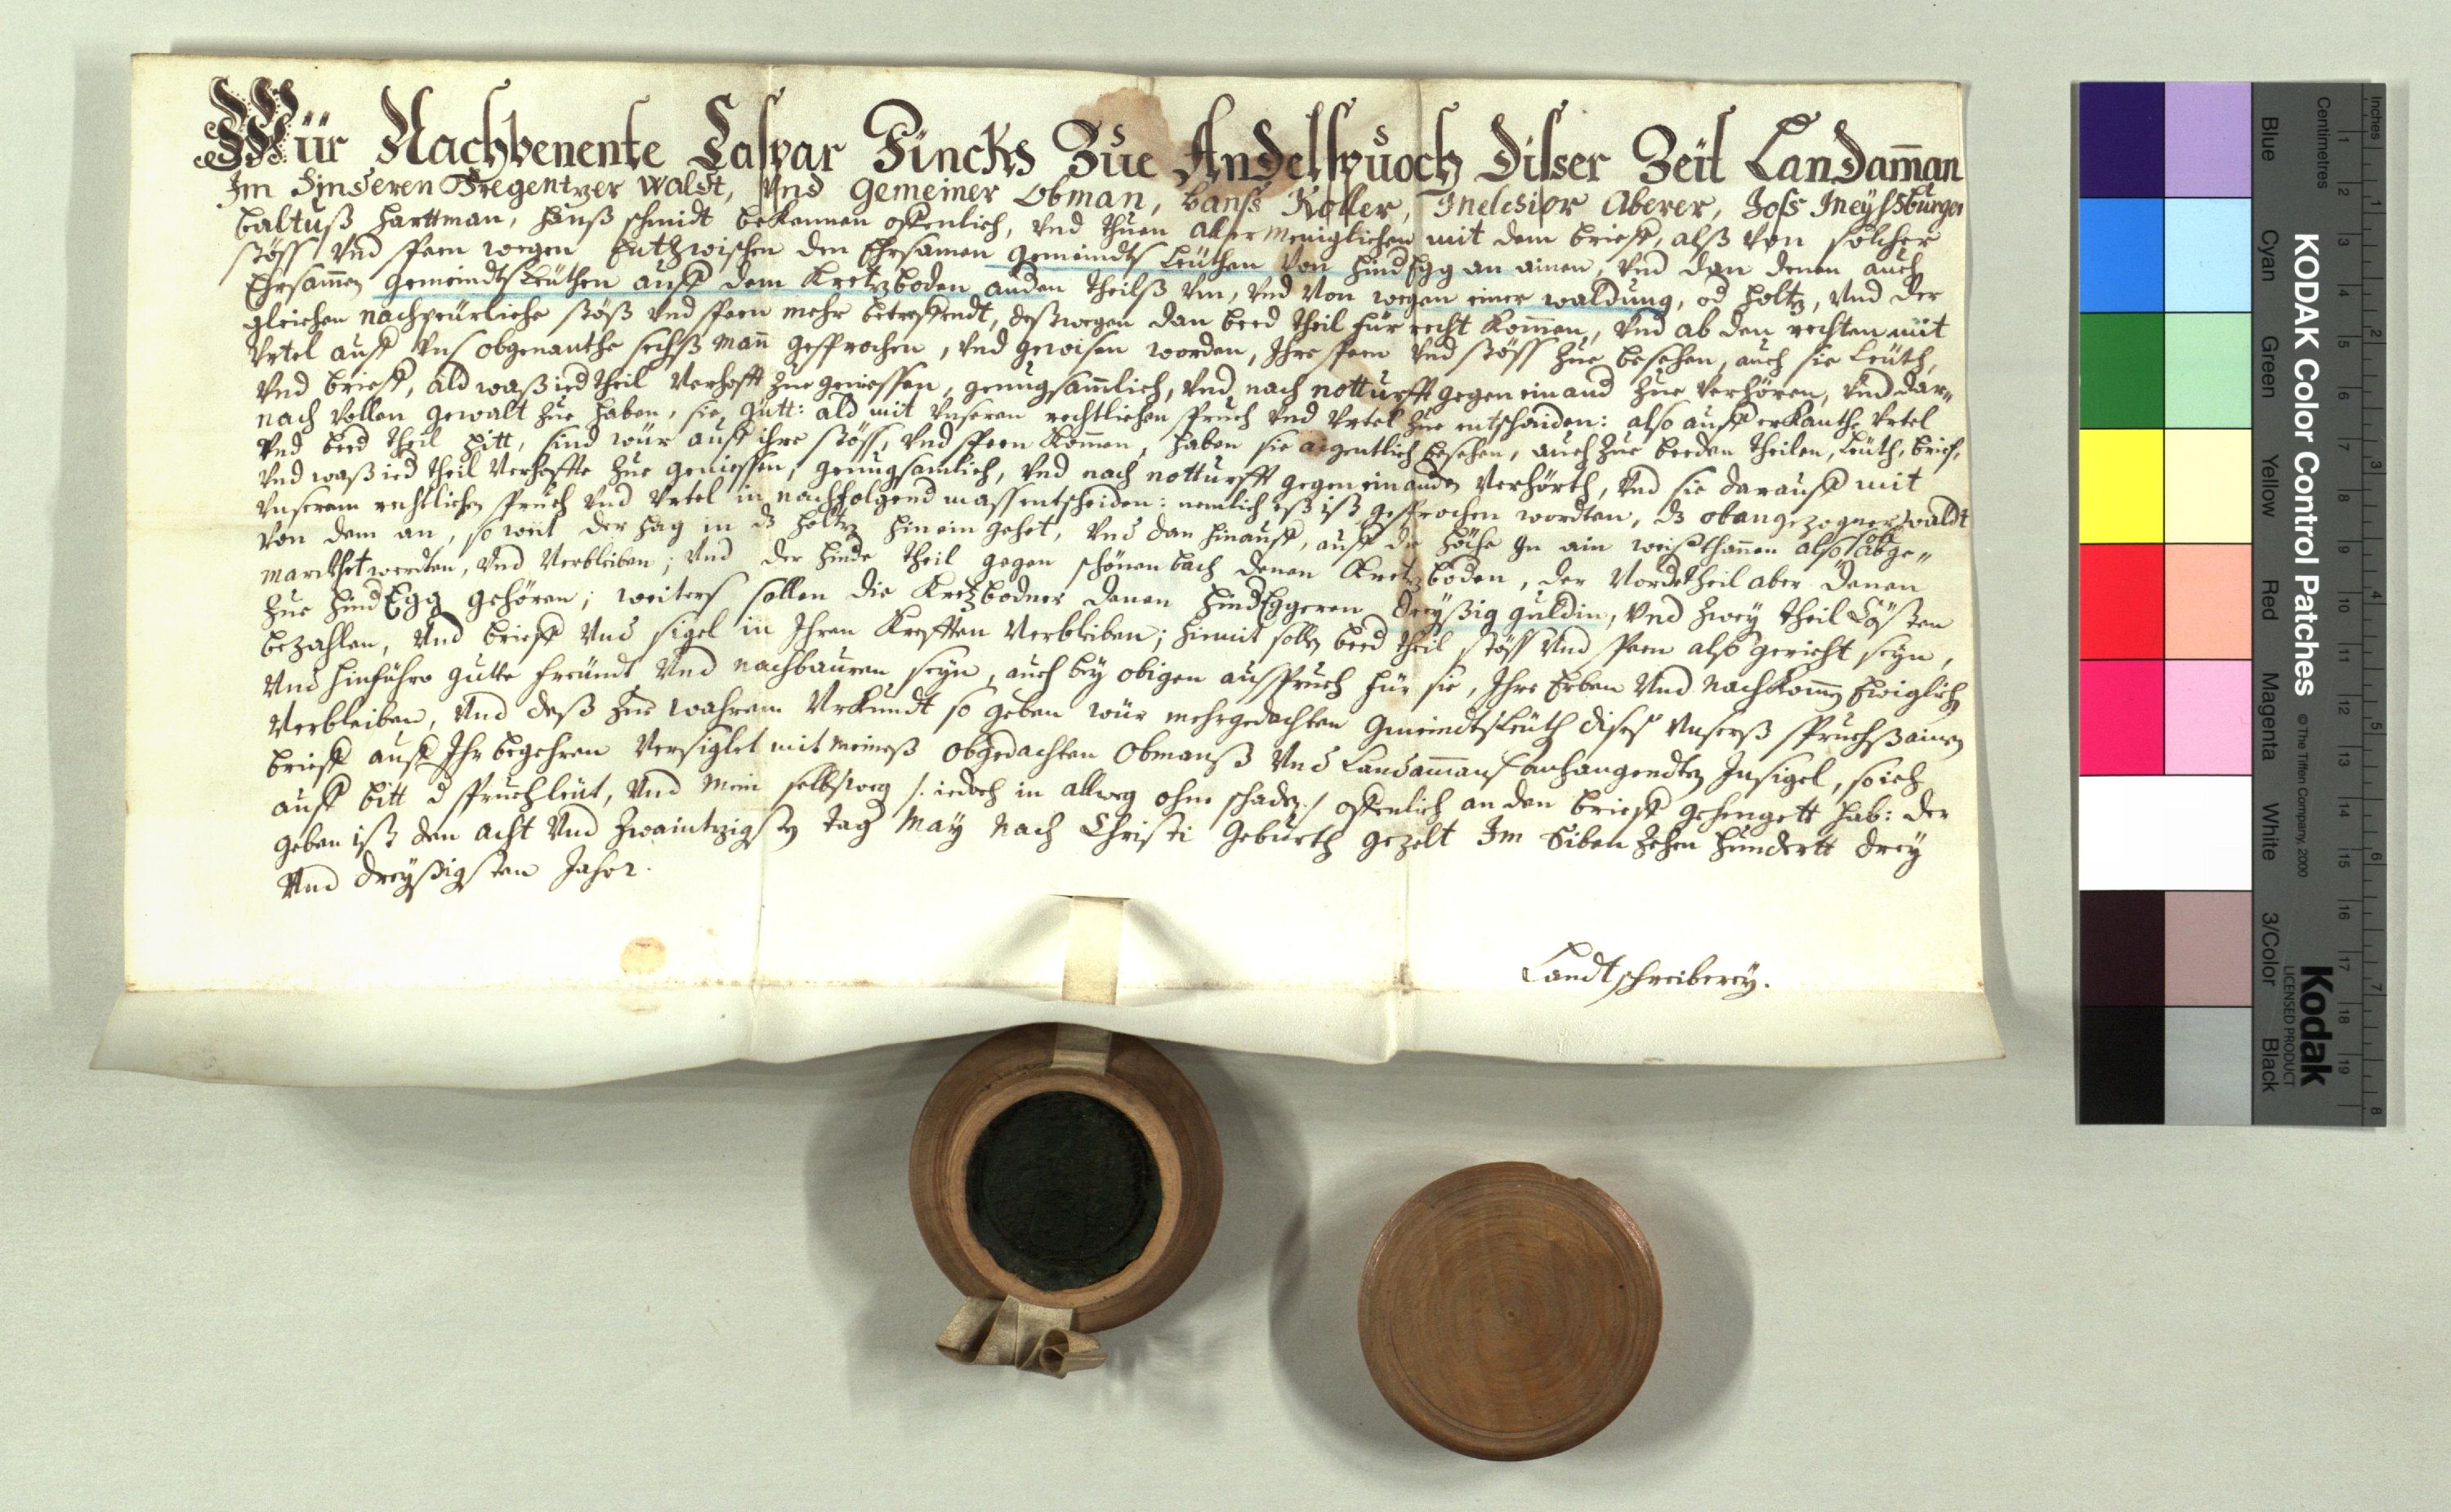 Wür Nachbenente Caspar Fincks Zue Andelspuoch diser Zeit Landam̄an
Im Hinderen Bregentzer Waldt, Vnd Gemeiner Obman, Hanß Koller, Melchior Aberer, Joß Meyßburger
baltuß Harttman, Hanß schmidt bekennen offentlich, Vnd thuen aller meniglichen mit dem brieff, alß von solcher
stöss Vnd span wegen, Enthzwischen den Ehrsamen Gemeindts Leüthen Von HindEgg an ainen, Vnd dan denen auch
Ehrsam̄en gemeindtsLeüthen auff dem Kretzboden anden theilß Vm, Vnd Von wegen einer waldung, od holtz, Vnd der
gleichen nachpeürliche stöß Vnd span mehr betreffendt, deßwegen dan beed theil für recht kom̄en, Vnd ab den rechten mit
Vrtel auff Vnß obgenanthe sechß man̄ gesprochen, Vnd gewisen worden, Ihre span Vnd stöss zue besehen, auch sie Leüth,
Vnd brieff, ald waß ied theil Verhofft zue geniessen, genugsam̄lich, Vnd nach notturfft gegen einand zue Verhören, Vnd dar„
nach vollen gewalt zue haben, sie, gütt: ald mit Vnseren rechtlichen spruch Vnd Vrtel zue entschaiden: also auff erkanthe Vrtel
Vnd beed theil bitt, sind wür auff ihre stöss, Vnd span kom̄en, haben sie aigentlich besehen, auch zue beeden theilen, Leüth, brieff,
Vnd waß ied theil Verhoffte zue geniessen, genugsamlich, Vnd nach notturfft gegen einanden Verhörth, Vnd sie darauff mit
Vnserem rechtlichen spruch Vnd Vrtel in nachfolgend mass entscheiden: nemlich eß ist gesprochen wordten, dz obangezogner Waldt
soll
von dem an, so weit der Hag in dz holtz hinein gehet, Vnd dan hinauff, auff die höche in ain weißthannen also abge„
marckhet werdten, Vnd Verbleiben; Vnd der hinde theil gegen schönenbach denen Kretzboden, der Vordetheil aber denen
zue HindEgg gehören; weiters sollen die Kretzbodner denen HindEggeren dreyßig guldin, Vnd zwey theil Cösten
bezahlen, Vnd brieff Vnd sigel in Ihren Krefften Verbleiben; hiemit sollen beed theil stöss Vnd span also gericht seyn,
Vnd hinführo gutte freündt Vnd nachbauren seyn, auch bey obigen ausspruch für sie, Ihre Erben Vnd nachkom̄en Ewiglich
Verbleiben, Vnd deß zue wahrem Vrkundt so geben wür mehrgedachten GmeindtsLeüth dises Vnserß spruchß ainen
brieff auff Ihr begehren Versiglet mit meineß obgedachten Obmanß Vnd Landam̄anß anhangendten Insigel, so ich
auff bitt d spruchleüt, Vnd Mein selbstweg /: iedoch in allweg ohne schaden :/ offentlich an den brieff gehengett hab: der
geben ist den acht Vnd Zwaintzigsten tag May nach Christi geburth gezelt Im Siben zehen hundertt drey
Vnd dreyßigsten Jahr.
Landtschreiberey.
KODAK Color Control Patches
© The Tiffen Company, 2000
Kodak
LICENSED PRODUCT
Inches
Centimetres
Blue Cyan Green Yellow Red Magenta White 3/Color Black
1 2 3 4 5 6 7 8
1 2 3 4 5 6 7 8 9 10 11 12 13 14 15 16 17 18 19